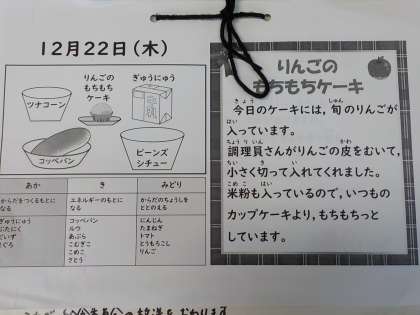 12月22日（木）
ツナコーン
りんごの
もちもち
ケーキ
ぎゅうにゅう
コッペパン
ビーンズ
シチュー
あか
き
みどり
からだをつくるもとに
なる
エネルギーのもとに
なる
からだのちょうしを
ととのえる
ぎゅうにゅう
ぶたにく
だいず
まぐろ
コッペパン
ルウ
あぶら
こむぎこ
こめこ
さとう
にんじん
たまねぎ
トマト
とうもろこし
りんご
りんごの
もちもちケーキ
今日のケーキには，旬のりんごが
入っています。
調理員さんがりんごの皮をむいて，
小さく切って入れてくれました。
米粉も入っているので，いつもの
カップケーキより，もちもちっと
しています。